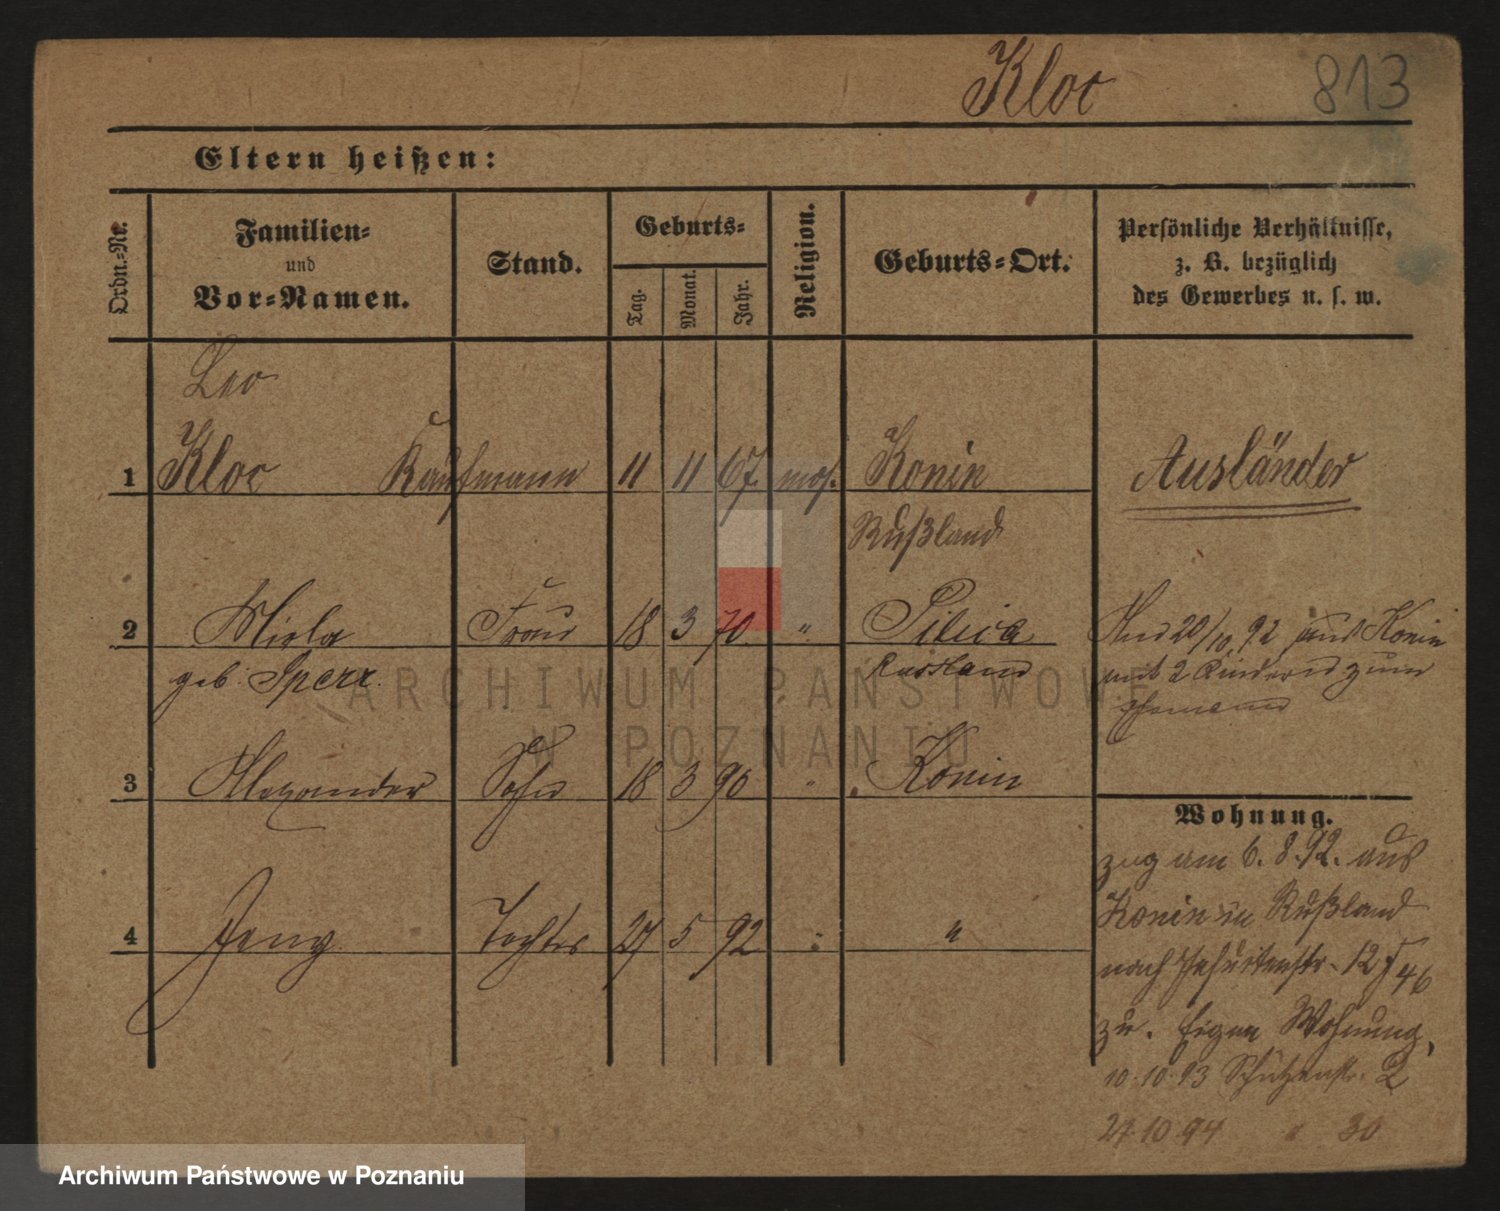 Kloc 813
Eltern heißen:
Ordn.-Nr.
Familien-
und
Vor-Namen.
Stand.
Geburts-
Tag.
Monat.
Jahr.
Religion.
Geburts-Ort.
Persönliche Verhältnisse,
z. B. bezüglich
des Gewerbes u. s. w.
Leo
1 Kloc Kaufmann 11 11 67 mos. Konin Ausländer
Rußland
2 Frau 18 3 70 " Pilica
geb. Sperr Russland
20/10 92 aus Konin
mit 2 Kindern zum
ARCHIWUM PAŃSTWOWE
W POZNANIU
3 Alexander Sohn 18 3 90 " Konin
4 Jeny Tochter 27 5 92 " "
Wohnung.
zug am 6. 8. 92. aus
Konin in Rußland
nach Jesuitenstr. 12
zu. Eigne Wohnung,
10.10.93 Schützenstr. 2
27.10.94 " 30
Archiwum Państwowe w Poznaniu